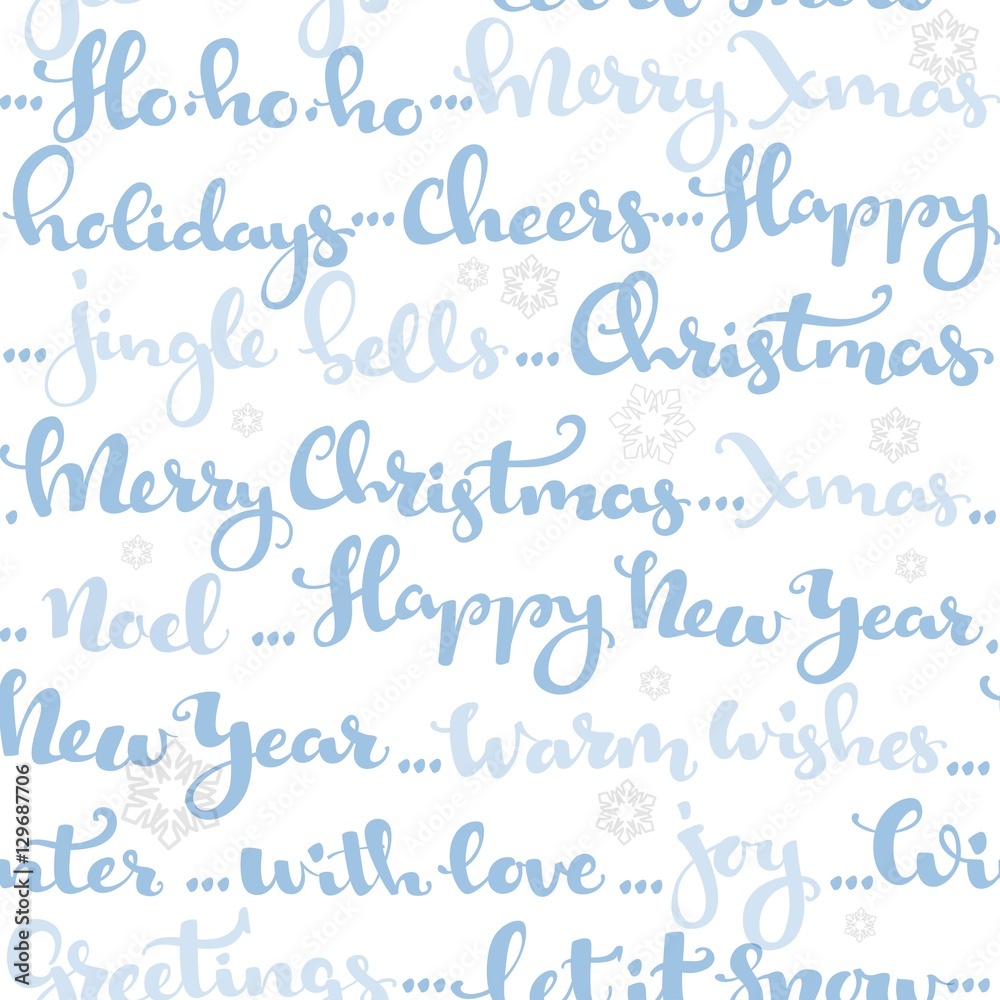 ...Ho·ho·ho...Merry Xmas
holidays...Cheers...Happy
...jingle bells...Christmas
.Merry Christmas...Xmas..
..Noel...Happy New Year.
New Year...warm wishes...
nter...with love...joy...Wi
Greetings...let it snow...
Adobe Stock | #129687706